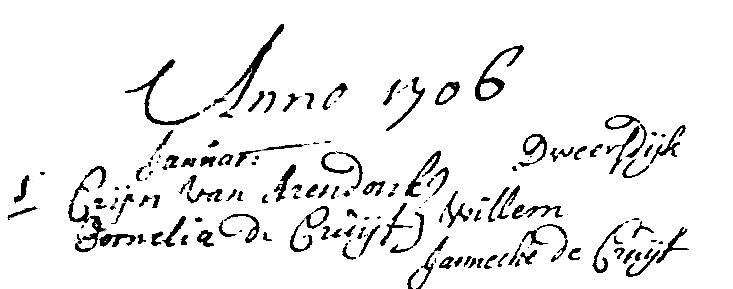 Anno 1706
Januar: Dweersdijk
5 Crijn van Arendonk
Cornelia de Cruijt } Willem
Janneke de Cruijt